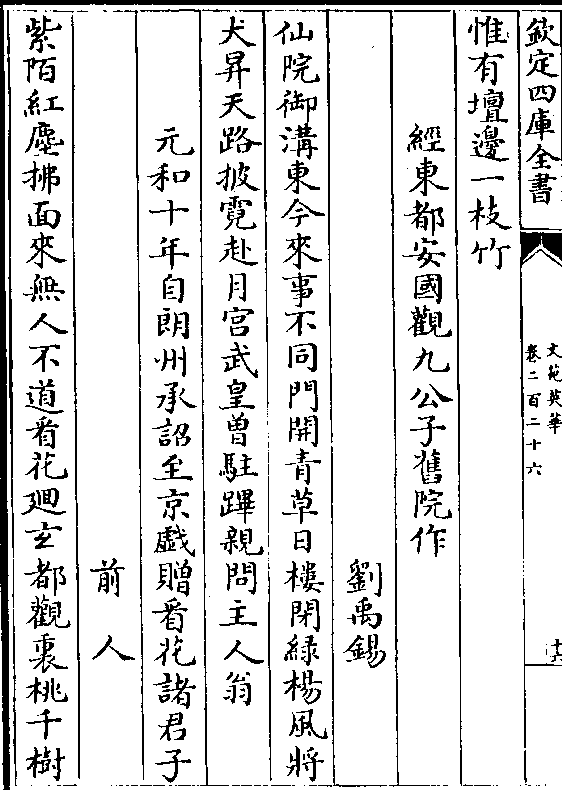 欽定四庫全書
文苑英華
卷二百二十六
十六
惟有壇邊一枝竹
經東都安國觀九公子舊院作
劉禹錫
仙院御溝東今來事不同門開青草日樓閉綠楊風將
犬昇天路披霓赴月宮武皇曽駐蹕親問主人翁
元和十年自朗州承詔至京戲贈看花諸君子
前人
紫陌紅塵拂面來無人不道看花廻玄都觀裏桃千樹